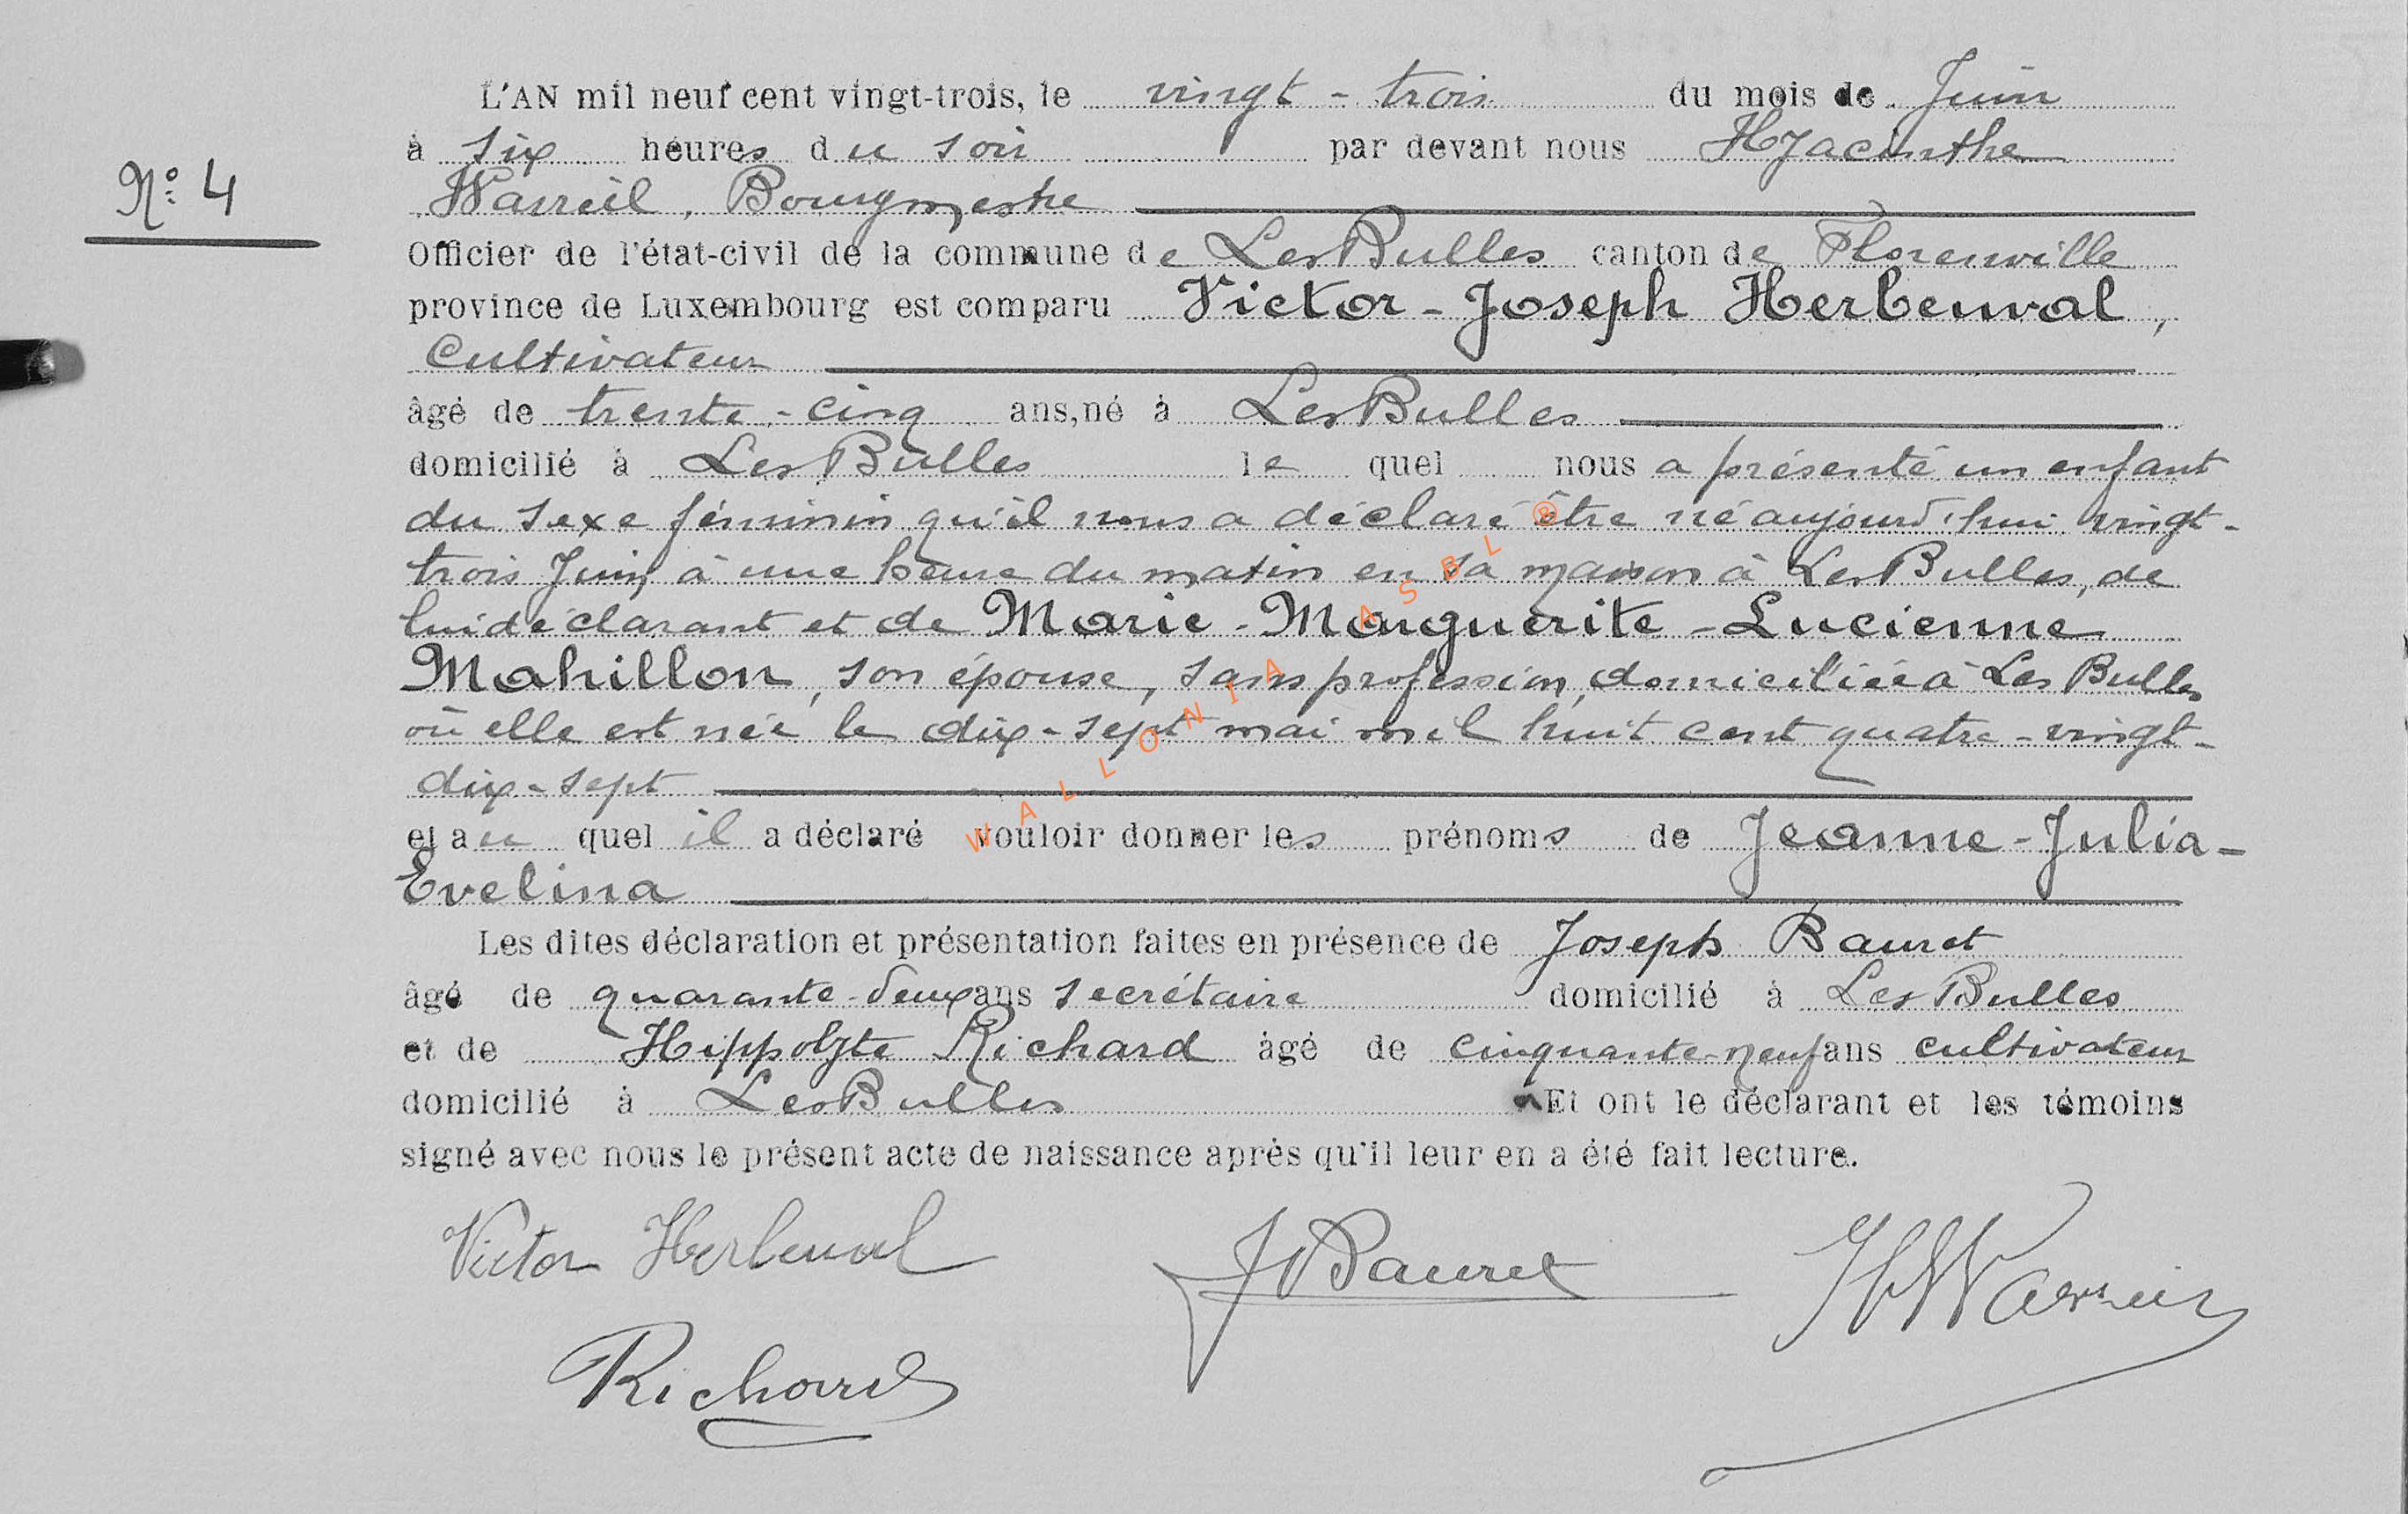 L'AN mil neuf cent vingt-trois, le vingt-trois du mois de Juin
à six heures du soir par devant nous Hyacinthe
N° 4
Bourgmestre
Officier de l'état-civil de la commune de Les Bulles canton de Florenville
province de Luxembourg est comparu Victor-Joseph Herbeuval,
Cultivateur
âgé de trente-cinq ans, né à Les Bulles
domicilié à Les Bulles le quel nous a présenté un enfant
du sexe féminin qu'il nous a déclaré être né aujourd'hui vingt-
trois Juin à une heure du matin en sa maison à Les Bulles, de
lui déclarant et de Marie-Marguerite-Lucienne
Mahillon, son épouse, sans profession, domiciliée à Les Bulles
où elle est née le dix-sept mai mil huit cent quatre-vingt-
dix-sept
et au quel il a déclaré vouloir donner les prénoms de Jeanne-Julia-
Evelina
Les dites déclaration et présentation faites en présence de Joseph Bauret
âgé de quarante-deux ans secrétaire domicilié à Les Bulles
et de Hippolyte Richard âgé de cinquante-neuf ans cultivateur
domicilié à Les Bulles Et ont le déclarant et les témoins
signé avec nous le présent acte de naissance après qu'il leur en a été fait lecture.
Victor Herbeuval JBauret
Richard
WALLONIA ASBL ®